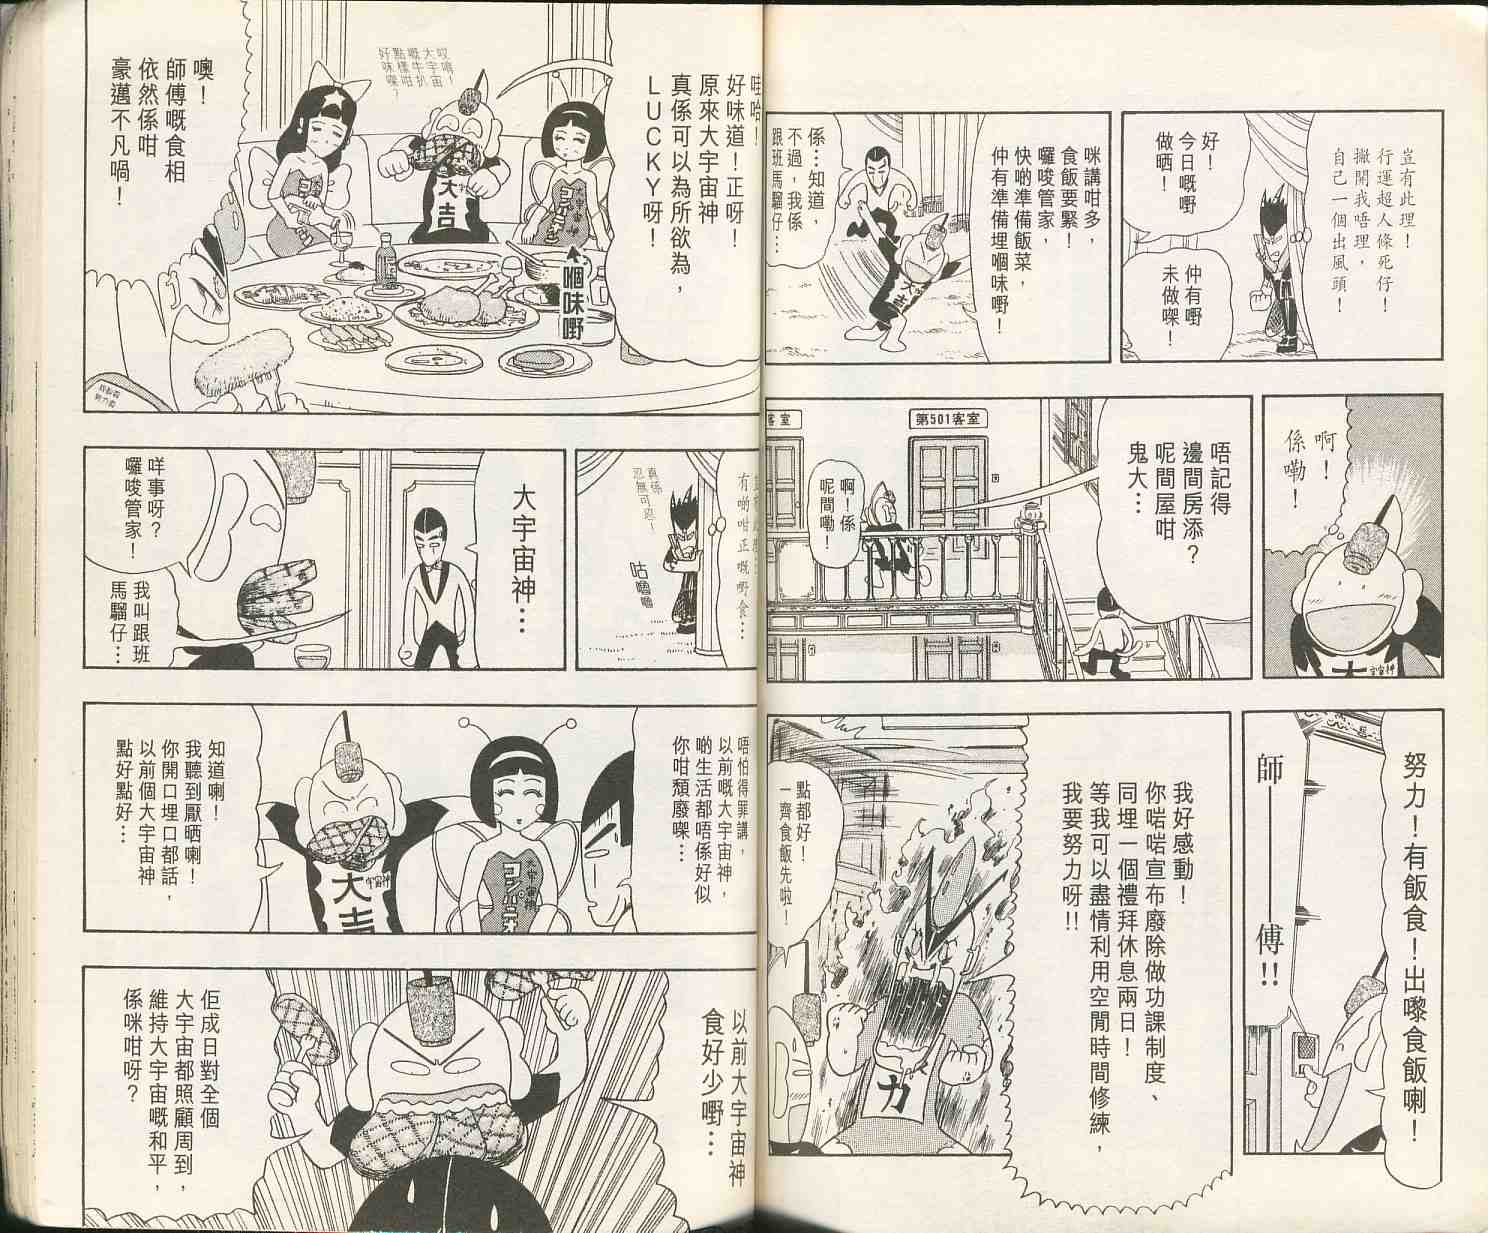 豈有此理！
行運超人條死仔！
撇開我唔理，
自己一個出風頭！
好！
今日嘅嘢
做晒！
仲有嘢
未做㗎！
咪講咁多，
食飯要緊！
囉唆管家，
快啲準備飯菜，
仲有準備埋嗰味嘢！
係…知道，
不過，我係
跟班馬騮仔…
大吉
啊！
係嘞！
大吉
宇宙神
唔記得
邊間房添？
呢間屋咁
鬼大…
第501客室
客室
啊！係
呢間嘞！
努力！有飯食！出嚟食飯喇！
師——傅!!
我好感動！
你啱啱宣布廢除做功課制度、
同埋一個禮拜休息兩日！
等我可以盡情利用空閒時間修練，
我要努力呀!!
點都好！
一齊食飯先啦！
力
哇哈！
好味道！正呀！
原來大宇宙神
真係可以為所欲為，
LUCKY呀！
哎唷！
大宇宙
嘅牛扒
點樣咁
好味㗎？
噢！
師傅嘅食相
依然係咁
豪邁不凡喎！
大吉
大宇宙神
嗰味嘢
有啲咁正嘅嘢食…
真係
忍無可忍！
咕嚕嚕
大宇宙神…
咩事呀？
囉唆管家！
我叫跟班
馬騮仔…
唔怕得罪講，
以前嘅大宇宙神，
啲生活都唔係好似
你咁頹廢㗎…
大宇宙神
コンパニオ
大吉
宇宙神
知道喇！
我聽到厭晒喇！
你開口埋口都話，
以前個大宇宙神，
點好點好…
以前大宇宙神
食好少嘢…
佢成日對全個
大宇宙都照顧周到，
維持大宇宙嘅和平，
係咪咁呀？